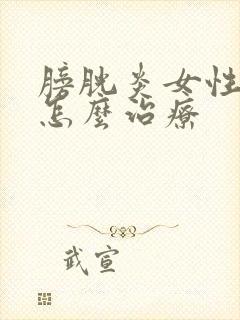 膀胱炎女性
怎麼治療
武宣